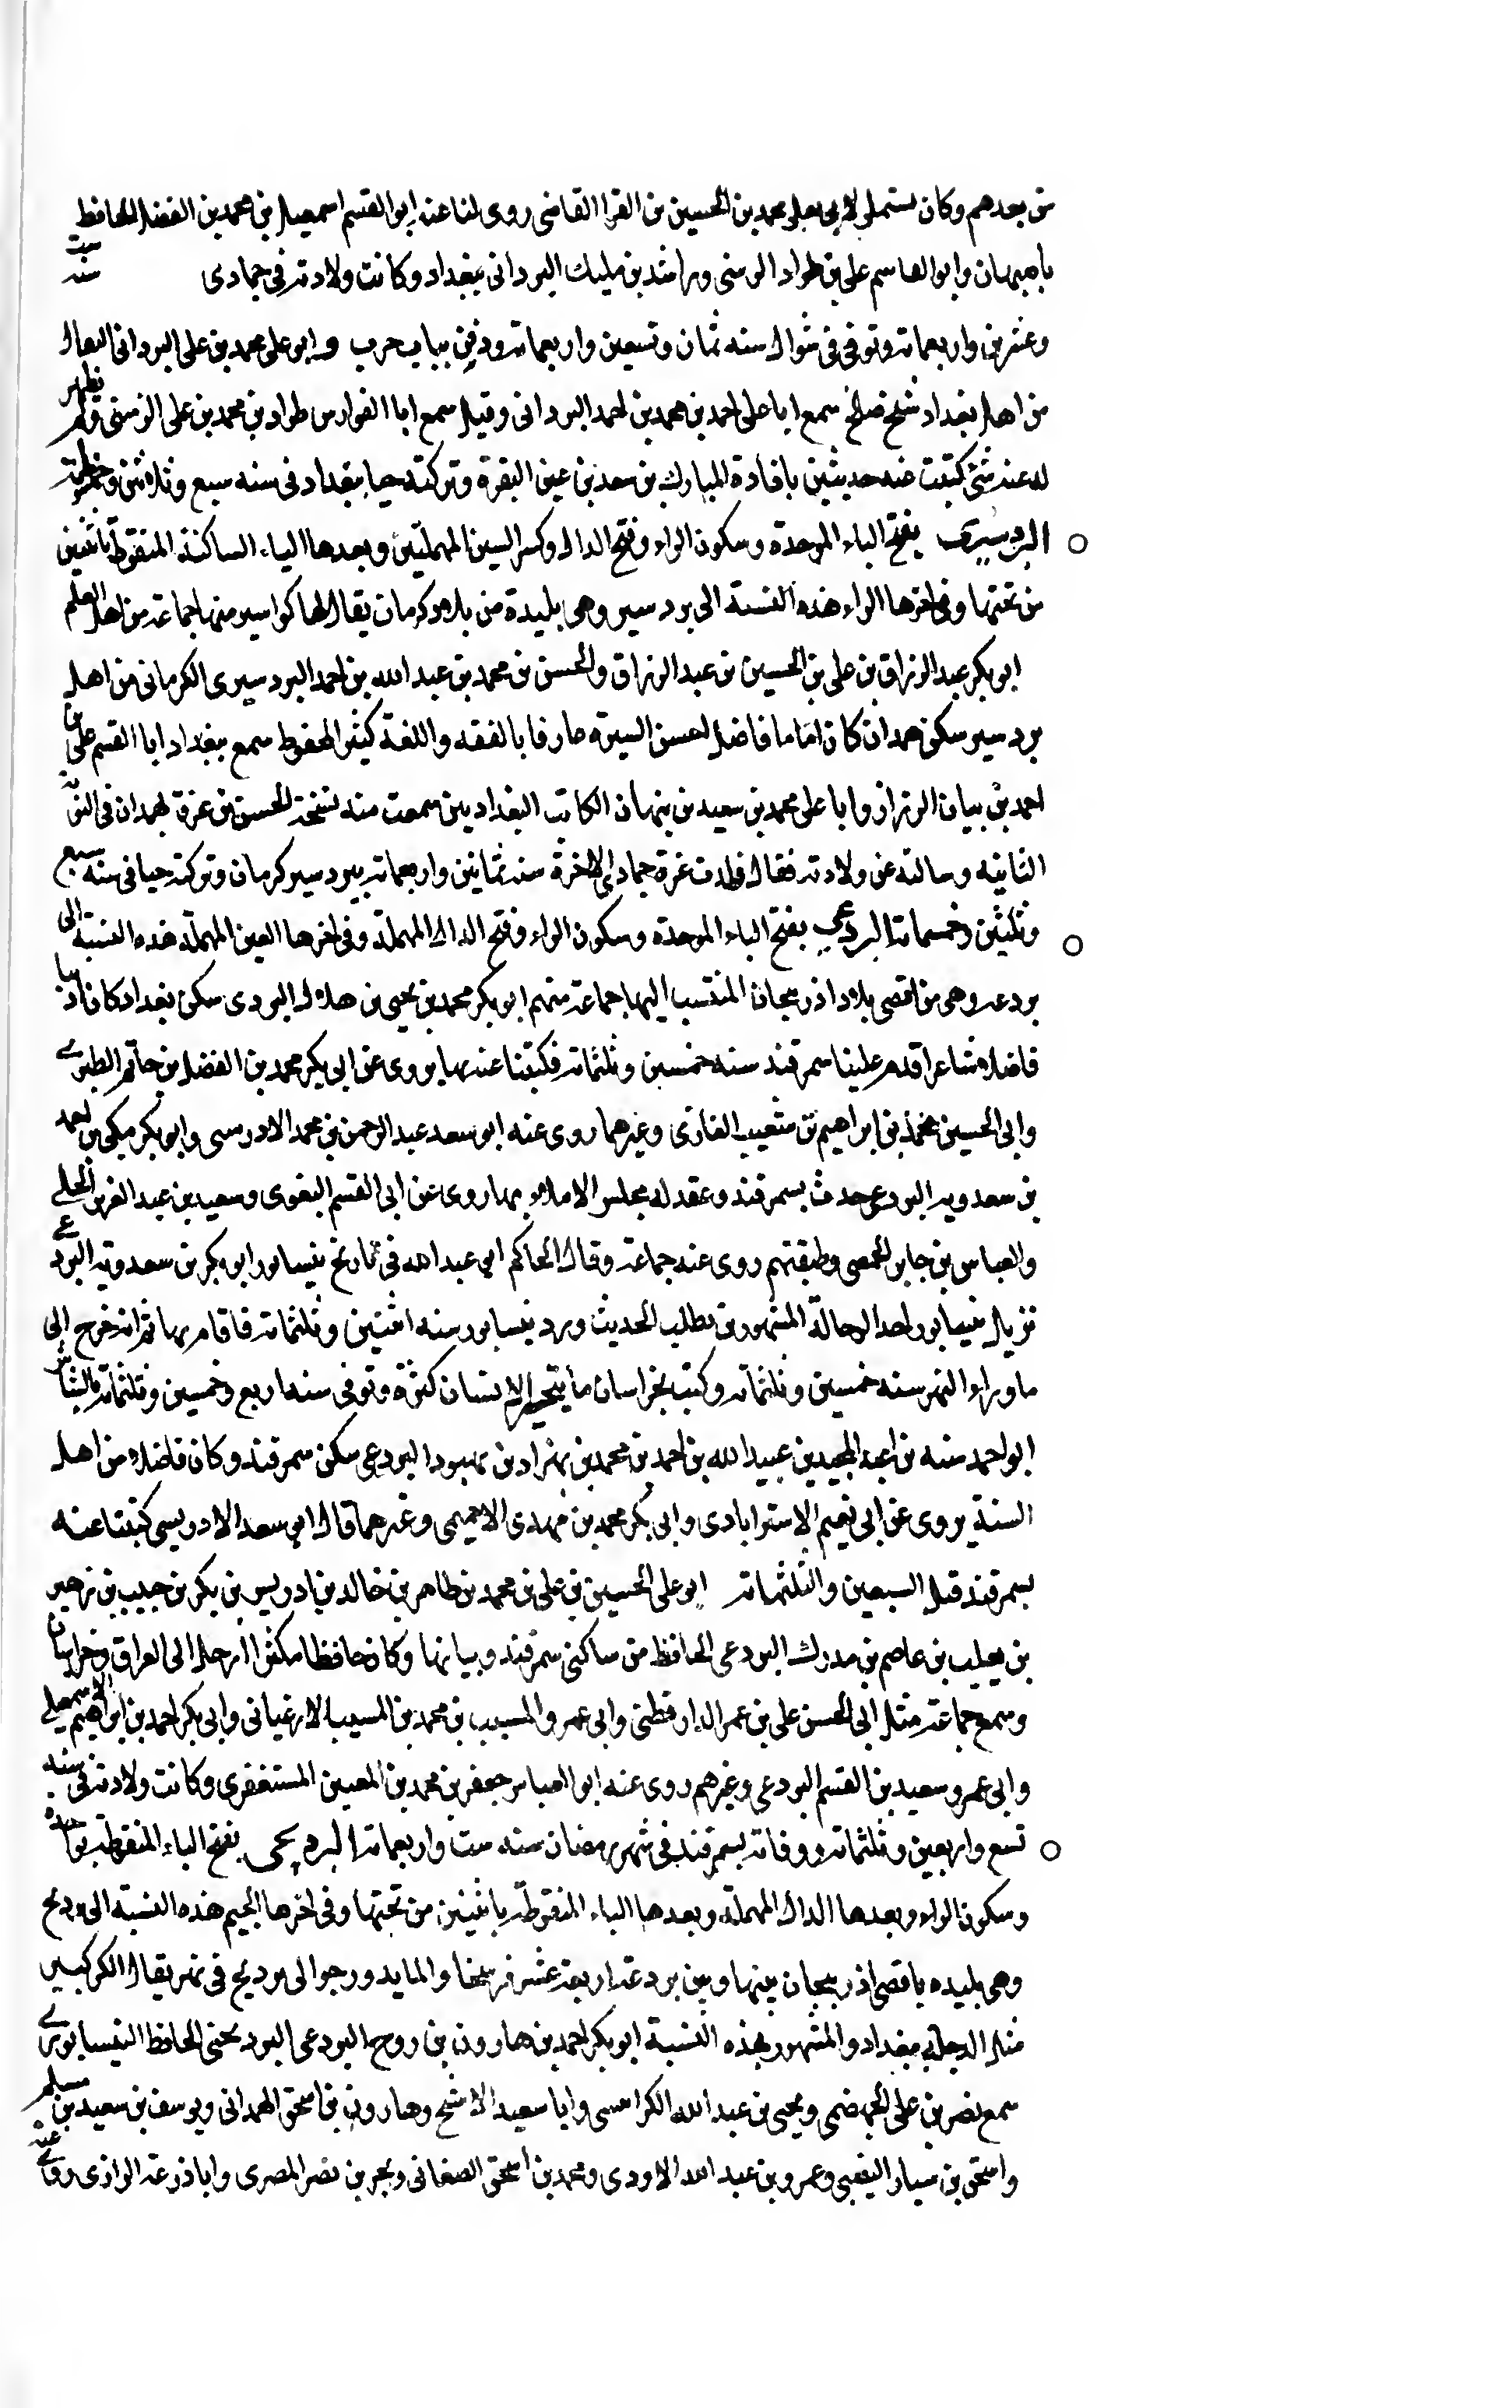 من بعدهم وكان يستملى لابى يعلى محمد بن الحسين بن الفرا القاضى روى لنا عنه ابو القسم اسمعيل بن محمد بن الفضل الحافظ
باصبهان وابو القاسم على بن طراد الزينبى وراشد بن مليك البردانى ببغداد وكانت ولادته فى جمادى سنه ست
وعشرين واربعمائه وتوفى فى شوال سنه ثمان وتسعين واربعمائه ودفن بباب حرب وابو على محمد بن على البردانى البقال
من اهل بغداد شيخ صالح سمع ابا على احمد بن محمد بن احمد البردانى وقيل سمع ابا الفوارس طراد بن محمد بن على الزينبى ولم يظهر
له عنه شئ كتبت عنه حديثين بافادة المبارك بن سعد بن عين البقرة وتركته حيا ببغداد فى سنه سبع وثلاثين وخمسمائه
البردسيرى بفتح الباء الموحدة وسكون الراء وفتح الدال وكسر السين المهملتين وبعدها الياء الساكنة المنقوطة باثنتين
من تحتها وفى اخرها الراء هذه النسبة الى بردسير وهى بليدة من بلاد كرمان يقال لها كواسير منها جماعة من اهل العلم
ابو بكر عبد الرزاق بن على بن الحسين بن عبد الرزاق والحسن بن محمد بن عبد الله بن احمد البردسيرى الكرمانى من اهل
بردسير سكن همدان كان اماما فاضلا حسن السيرة عارفا بالفقه واللغة كثير المحفوظ سمع ببغداد ابا القسم على بن
احمد بن بيان الرزاز وابا على محمد بن سعيد بن نبهان الكاتب البغداديين سمعت منه نسخة الحسن بن عرفة بهمدان فى النوبة
الثانيه وسالته عن ولادته فقال ولدت غرة جمادى الاخرة سنه ثمانين واربعمائه ببردسير كرمان وتركته حيا فى سنه سبع
وثلثين وخمسمائه البردعي بفتح الباء الموحدة وسكون الراء وفتح الدال المهملة وفى اخرها العين المهملة هذه النسبة الى
بردعه وهى من اقصى بلاد اذربيجان المنتسب اليها جماعة منهم ابو بكر محمد بن يحيى بن هلال البردى سكن بغداد كان اديبا
فاضلا شاعرا قدم علينا سمرقند سنه خمسين وثلثمائه فكتبنا عنه بها يروى عن ابى بكر محمد بن الفضل بن حاتم الطبرى
وابى الحسين محمد بن ابراهيم بن شعيب الغازى وغيرهما روى عنه ابو سعد عبد الرحمن بن محمد الادريسى وابو بكر مكى بن احمد
بن سعدويه البردعى حدث بسمرقند وعقد له مجلس الاملاء بها روى عن ابى القسم البغوى وسعيد بن عبد العزيز الحلبي
والعباس بن جابر الحمصى وطبقتهم روى عنه جماعة وقال الحاكم ابى عبد الله فى تاريخ نيسابور ابو بكر بن سعدويه البردعي
نزيل نيسابور احد الرحالة المشهورين بطلب الحديث ورد نيسابور سنه اثنتين وثلثمائه فاقام بها ثم انه خرج الى
ما وراء النهر سنه خمسين وثلثمائه وكتب بخراسان ما يتحير الانسان كثرة وتوفى سنه اربع وخمسين وثلثمائه بالشاش
ابو احمد منبه بن عبد المجيد بن عبيد الله بن احمد بن محمد بن بهزاد بن بهبود البردعى سكن سمرقند وكان فاضلا من اهل
السنة يروى عن ابى نعيم الاستراباذى وابى بكر محمد بن مهدى الاخميمى وغيرهما قال ابى سعد الادريسى كتبنا عنه
بسمرقند قبل السبعين والثلثمائه ابو على الحسين بن على بن محمد بن طاهر بن خالد بن ادريس بن بكر بن حبيب بن زهير
بن يعلب بن عاصم بن مدرك البردعى الحافظ من ساكنى سمرقند وبياتها وكان حافظا مكثرا رحل الى العراق وخراسان
وسمع جماعة مثل ابى الحسن على بن عمر الدارقطنى وابى عمرو المسيب بن محمد بن المسيب الارغيانى وابى بكر احمد بن ابراهيم الاسمعيلى
وابى عمرو سعيد بن القسم البردعى وغيرهم روى عنه ابو العباس جعفر بن محمد بن المعين المستغفرى وكانت ولادته فى سنه
تسع واربعين وثلثمائه ووفاته بسمرقند فى شهر رمضان سنه ست واربعمائه البرديجى بفتح الباء المنقوطة بواحدة
وسكون الراء وبعدها الدال المهملة وبعدها الياء المنقوطة باثنتين من تحتها وفى اخرها الجيم هذه النسبة الى برديج
وهى بليده باقصى اذربيجان بينها وبين بردعة اربعة عشر فرسخا والماء يدور حوالى برديج فى نهر يقال الكر كبير
مثل الدجله ببغداد والمشهور بهذه النسبة ابو بكر احمد بن هارون بن روح البردعى البرديجى الحافظ النيسابورى
سمع نصر بن على الجهضمى ويحيى بن عبد الله الكرابيسى وابا سعيد الاشج وهارون بن اسحق الهمدانى ويوسف بن سعيد بن مسلم
واسحق بن سيار النصيبى وعمرو بن عبد الله الاودى ومحمد بن اسحق الصغانى وبحر بن نصر المصرى وابا زرعة الرازى روى عنه